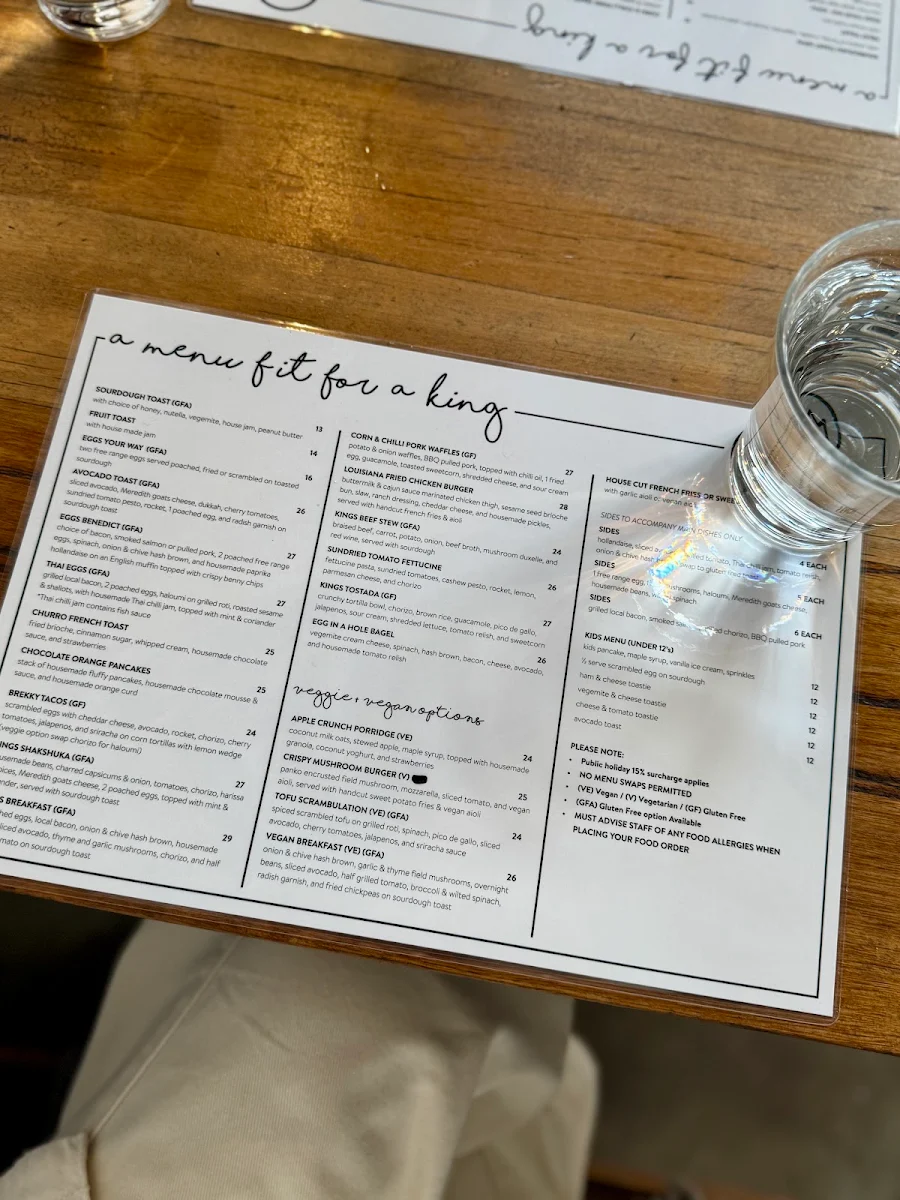 a menu fit for a king
SOURDOUGH TOAST (GFA) 13
with choice of honey, nutella, vegemite, house jam, peanut butter
FRUIT TOAST 14
with house made jam
EGGS YOUR WAY (GFA) 16
two free range eggs served poached, fried or scrambled on toasted
sourdough
AVOCADO TOAST (GFA) 26
sliced avocado, Meredith goats cheese, dukkah, cherry tomatoes,
sundried tomato pesto, rocket, 1 poached egg, and radish garnish on
sourdough toast
EGGS BENEDICT (GFA) 27
choice of bacon, smoked salmon or pulled pork, 2 poached free range
eggs, spinach, onion & chive hash brown, and housemade paprika
hollandaise on an English muffin topped with crispy benny chips
THAI EGGS (GFA) 27
grilled local bacon, 2 poached eggs, haloumi on grilled roti, roasted sesame
& shallots, with housemade Thai chilli jam, topped with mint & coriander
*Thai chilli jam contains fish sauce
CHURRO FRENCH TOAST 25
fried brioche, cinnamon sugar, whipped cream, housemade chocolate
sauce, and strawberries
CHOCOLATE ORANGE PANCAKES 25
stack of housemade fluffy pancakes, housemade chocolate mousse &
sauce, and housemade orange curd
BREKKY TACOS (GF) 24
scrambled eggs with cheddar cheese, avocado, rocket, chorizo, cherry
tomatoes, jalapenos, and sriracha on corn tortillas with lemon wedge
veggie option swap chorizo for haloumi)
INGS SHAKSHUKA (GFA) 27
usemade beans, charred capsicums & onion, tomatoes, chorizo, harissa
ices, Meredith goats cheese, 2 poached eggs, topped with mint &
nder, served with sourdough
S BREAKFAST (GFA) 29
hed eggs, local bacon, onion & chive hash brown, housemade
liced avocado, thyme and garlic mushrooms, chorizo, and half
mato on sourdough toast
CORN & CHILLI PORK WAFFLES (GF) 27
potato & onion waffles, BBQ pulled pork, topped with chilli oil, 1 fried
egg, guacamole, toasted sweetcorn, shredded cheese, and sour cream
LOUISIANA FRIED CHICKEN BURGER 28
buttermilk & cajun sauce marinated chicken thigh, sesame seed brioche
bun, slaw, ranch dressing, cheddar cheese, and housemade pickles,
served with handcut french fries & aioli
KINGS BEEF STEW (GFA) 24
braised beef, carrot, potato, onion, beef broth, mushroom duxelle, and
red wine, served with sourdough
SUNDRIED TOMATO FETTUCINE 26
fettucine pasta, sundried tomatoes, cashew pesto, rocket, lemon,
parmesan cheese, and chorizo
KINGS TOSTADA (GF) 27
crunchy tortilla bowl, chorizo, brown rice, guacamole, pico de gallo,
jalapenos, sour cream, shredded lettuce, tomato relish, and sweetcorn
EGG IN A HOLE BAGEL 26
vegemite cream cheese, spinach, hash brown, bacon, cheese, avocado,
and housemade tomato relish
veggie + vegan options
APPLE CRUNCH PORRIDGE (VE) 24
coconut milk oats, stewed apple, maple syrup, topped with housemade
granola, coconut yoghurt, and strawberries
CRISPY MUSHROOM BURGER (V) 25
panko encrusted field mushroom, mozzarella, sliced tomato, and vegan
aioli, served with handcut sweet potato fries & vegan aioli
TOFU SCRAMBULATION (VE) (GFA) 24
spiced scrambled tofu on grilled roti, spinach, pico de gallo, sliced
avocado, cherry tomatoes, jalapenos, and sriracha sauce
VEGAN BREAKFAST (VE) (GFA) 26
onion & chive hash brown, garlic & thyme field mushrooms, overnight
beans, sliced avocado, half grilled tomato, broccoli & wilted spinach,
radish garnish, and fried chickpeas on sourdough toast
HOUSE CUT FRENCH FRIES OR SWEE
with garlic aioli or vegan aioli
SIDES TO ACCOMPANY MAIN DISHES ONLY
SIDES 4 EACH
hollandaise, sliced tomato, Thai chilli jam, tomato relish,
onion & chive hash swap to gluten free bread
SIDES 5 EACH
1 free range egg, mushrooms, haloumi, Meredith goats cheese,
housemade beans, spinach
SIDES 6 EACH
grilled local bacon, smoked chorizo, BBQ pulled pork
KIDS MENU (UNDER 12's)
kids pancake, maple syrup, vanilla ice cream, sprinkles 12
½ serve scrambled egg on sourdough 12
ham & cheese toastie 12
vegemite & cheese toastie 12
cheese & tomato toastie 12
avocado toast 12
PLEASE NOTE:
• Public holiday 15% surcharge applies
• NO MENU SWAPS PERMITTED
• (VE) Vegan / (V) Vegetarian / (GF) Gluten Free
• (GFA) Gluten Free option Available
• MUST ADVISE STAFF OF ANY FOOD ALLERGIES WHEN
PLACING YOUR FOOD ORDER
a menu fit for a king